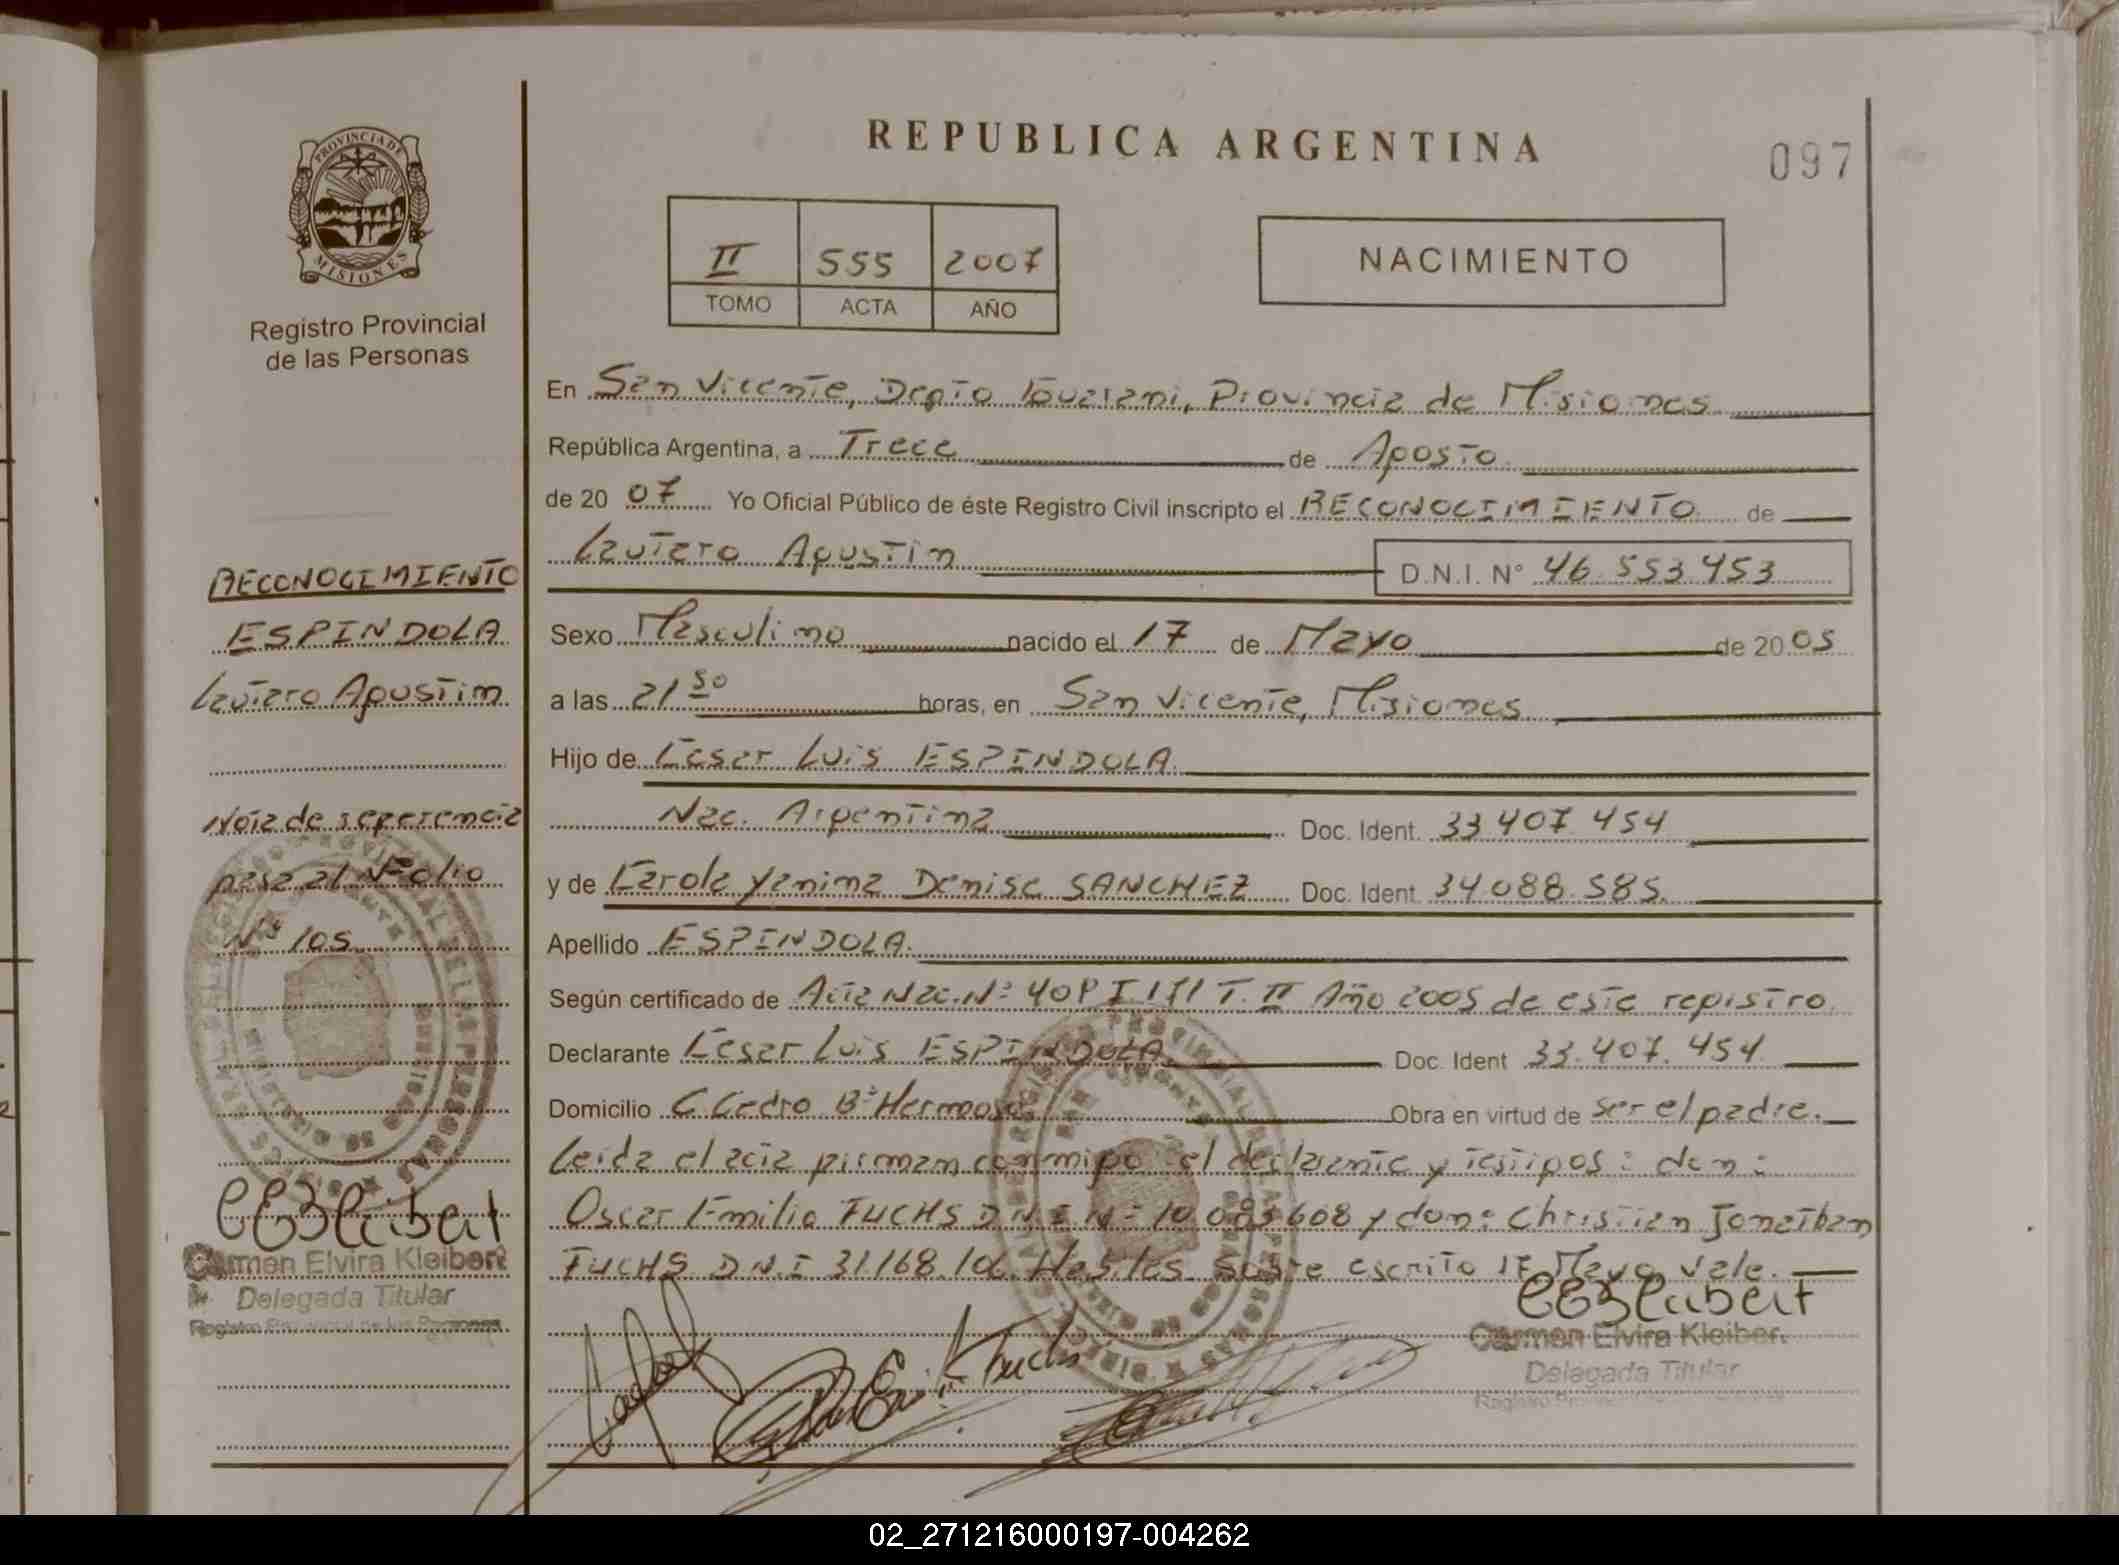 REPUBLICA ARGENTINA
097
PROVINCIA DE
MISIONES
Registro Provincial
de las Personas
II 555 2007
TOMO ACTA AÑO
NACIMIENTO
En San Vicente, Depto Guarani, Provincia de Misiones
República Argentina, a Trece de Agosto
de 20 07 Yo Oficial Público de éste Registro Civil inscripto el RECONOCIMIENTO de
Lautaro Agustin D.N.I. N° 46.553.453
Sexo Masculino nacido el 17 de Mayo de 20 05
a las 21 50 horas, en San Vicente, Misiones
Hijo de Cesar Luis ESPINDOLA
Nac. Argentina Doc. Ident. 33 407 454
y de Carola Yanina Denise SANCHEZ Doc. Ident. 34.088.585.
Apellido ESPINDOLA.
Según certificado de Acta Nac. N° 409 T. II Año 2005 de este registro.
Declarante Cesar Luis ESPINDOLA Doc. Ident 33.407.454
Domicilio C Cedro B° Hermoso Obra en virtud de ser el padre.
Leida el acta firman conmigo el declarante y testigos: don:
Oscar Emilio FUCHS D.N.I N° 10.083608 y don: Christian Jonathan
FUCHS D.N.I 31.168.106. Habiles. Sobre escrito 17 Mayo Vale.
RECONOCIMIENTO
ESPINDOLA
Lautaro Agustin
Nota de referencia
pasa al Folio
N° 105
Carmen Elvira Kleibert
Delegada Titular
Registro Provincial de las Personas
Carmen Elvira Kleiber
Delegada Titular
02_271216000197-004262